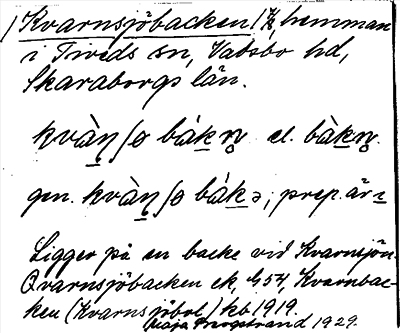 Kvarnsjöbacken, 1/2 hemman
i Tiveds sn, Vadsbo hd,
Skaraborgs län.
kvàn̠ʃɵ bák̠n̥ el. bàk̠n̥.
gen. kvàn̠ʃɵ bák̠ə; prep. är i
Ligger på en backe vid Kvarnsjön.
Qvarnsjöbacken ek, Kvarnbac-
ken (Kvarnsjöbol) kb 1919.
Maja Bergstrand 1929.